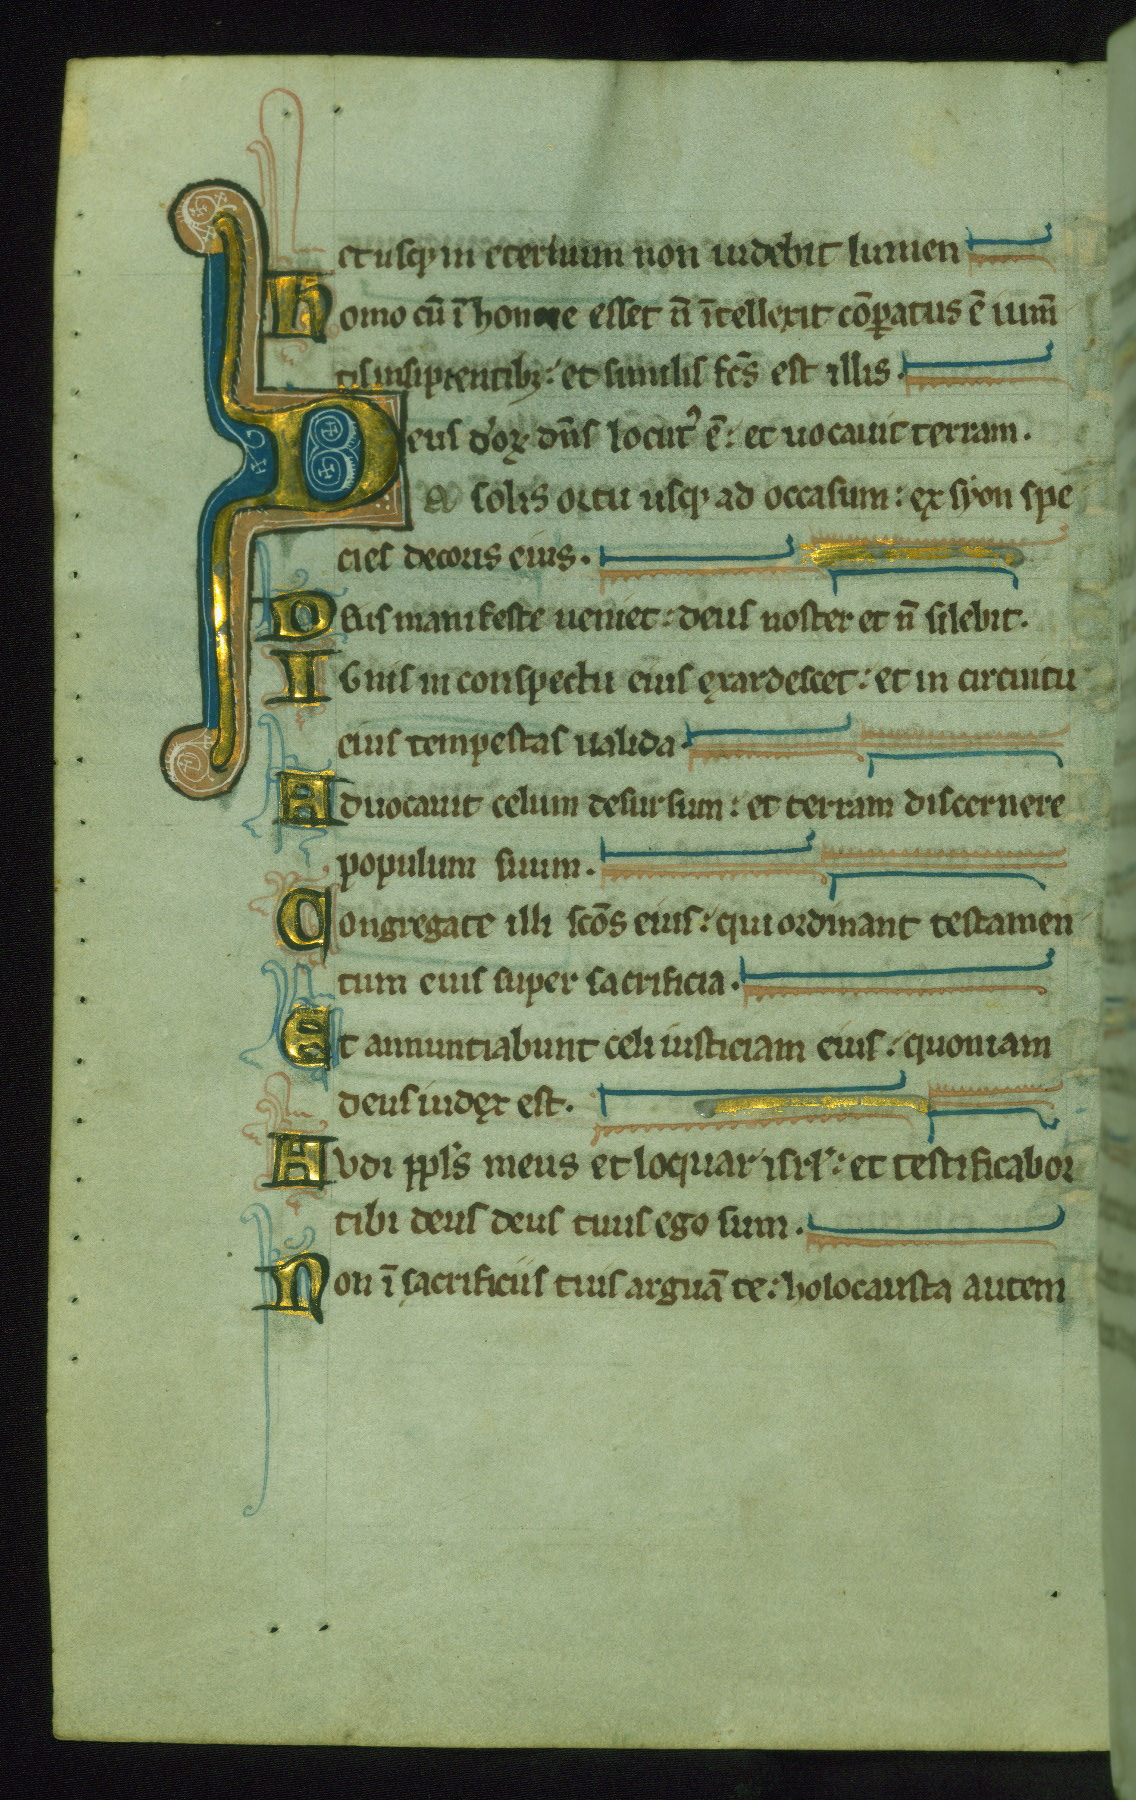 et usqȝ in eternum non uidebit lumen
Homo cū ī honore esset n̄ ītellexit cōꝑatus ē ium̄
tis insipientibꝫ: et similis fc̄s est illis.
Deus d'oꝝ dn̄s locut᾽ ē: et uocauit terram.
A solis ortu usqȝ ad occasum: ex syon spe
cies decoris eius.
Deus manifeste ueniet: deus noster et n̄ silebit.
Ignis in conspectu eius exardescet: et in circuitu
eius tempestas ualida.
Aduocauit celum desursum: et terram discernere
populum suum.
Congregate illi scōs eius: qui ordinant testamen
tum eius super sacrificia.
Et annuntiabunt celi iusticiam eius: quoniam
deus iudex est.
Audi ppl's meus et loquar isrl᾽: et testificabor
tibi deus deus tuus ego sum.
Non ī sacrificiis tuis arguā te: holocausta autem